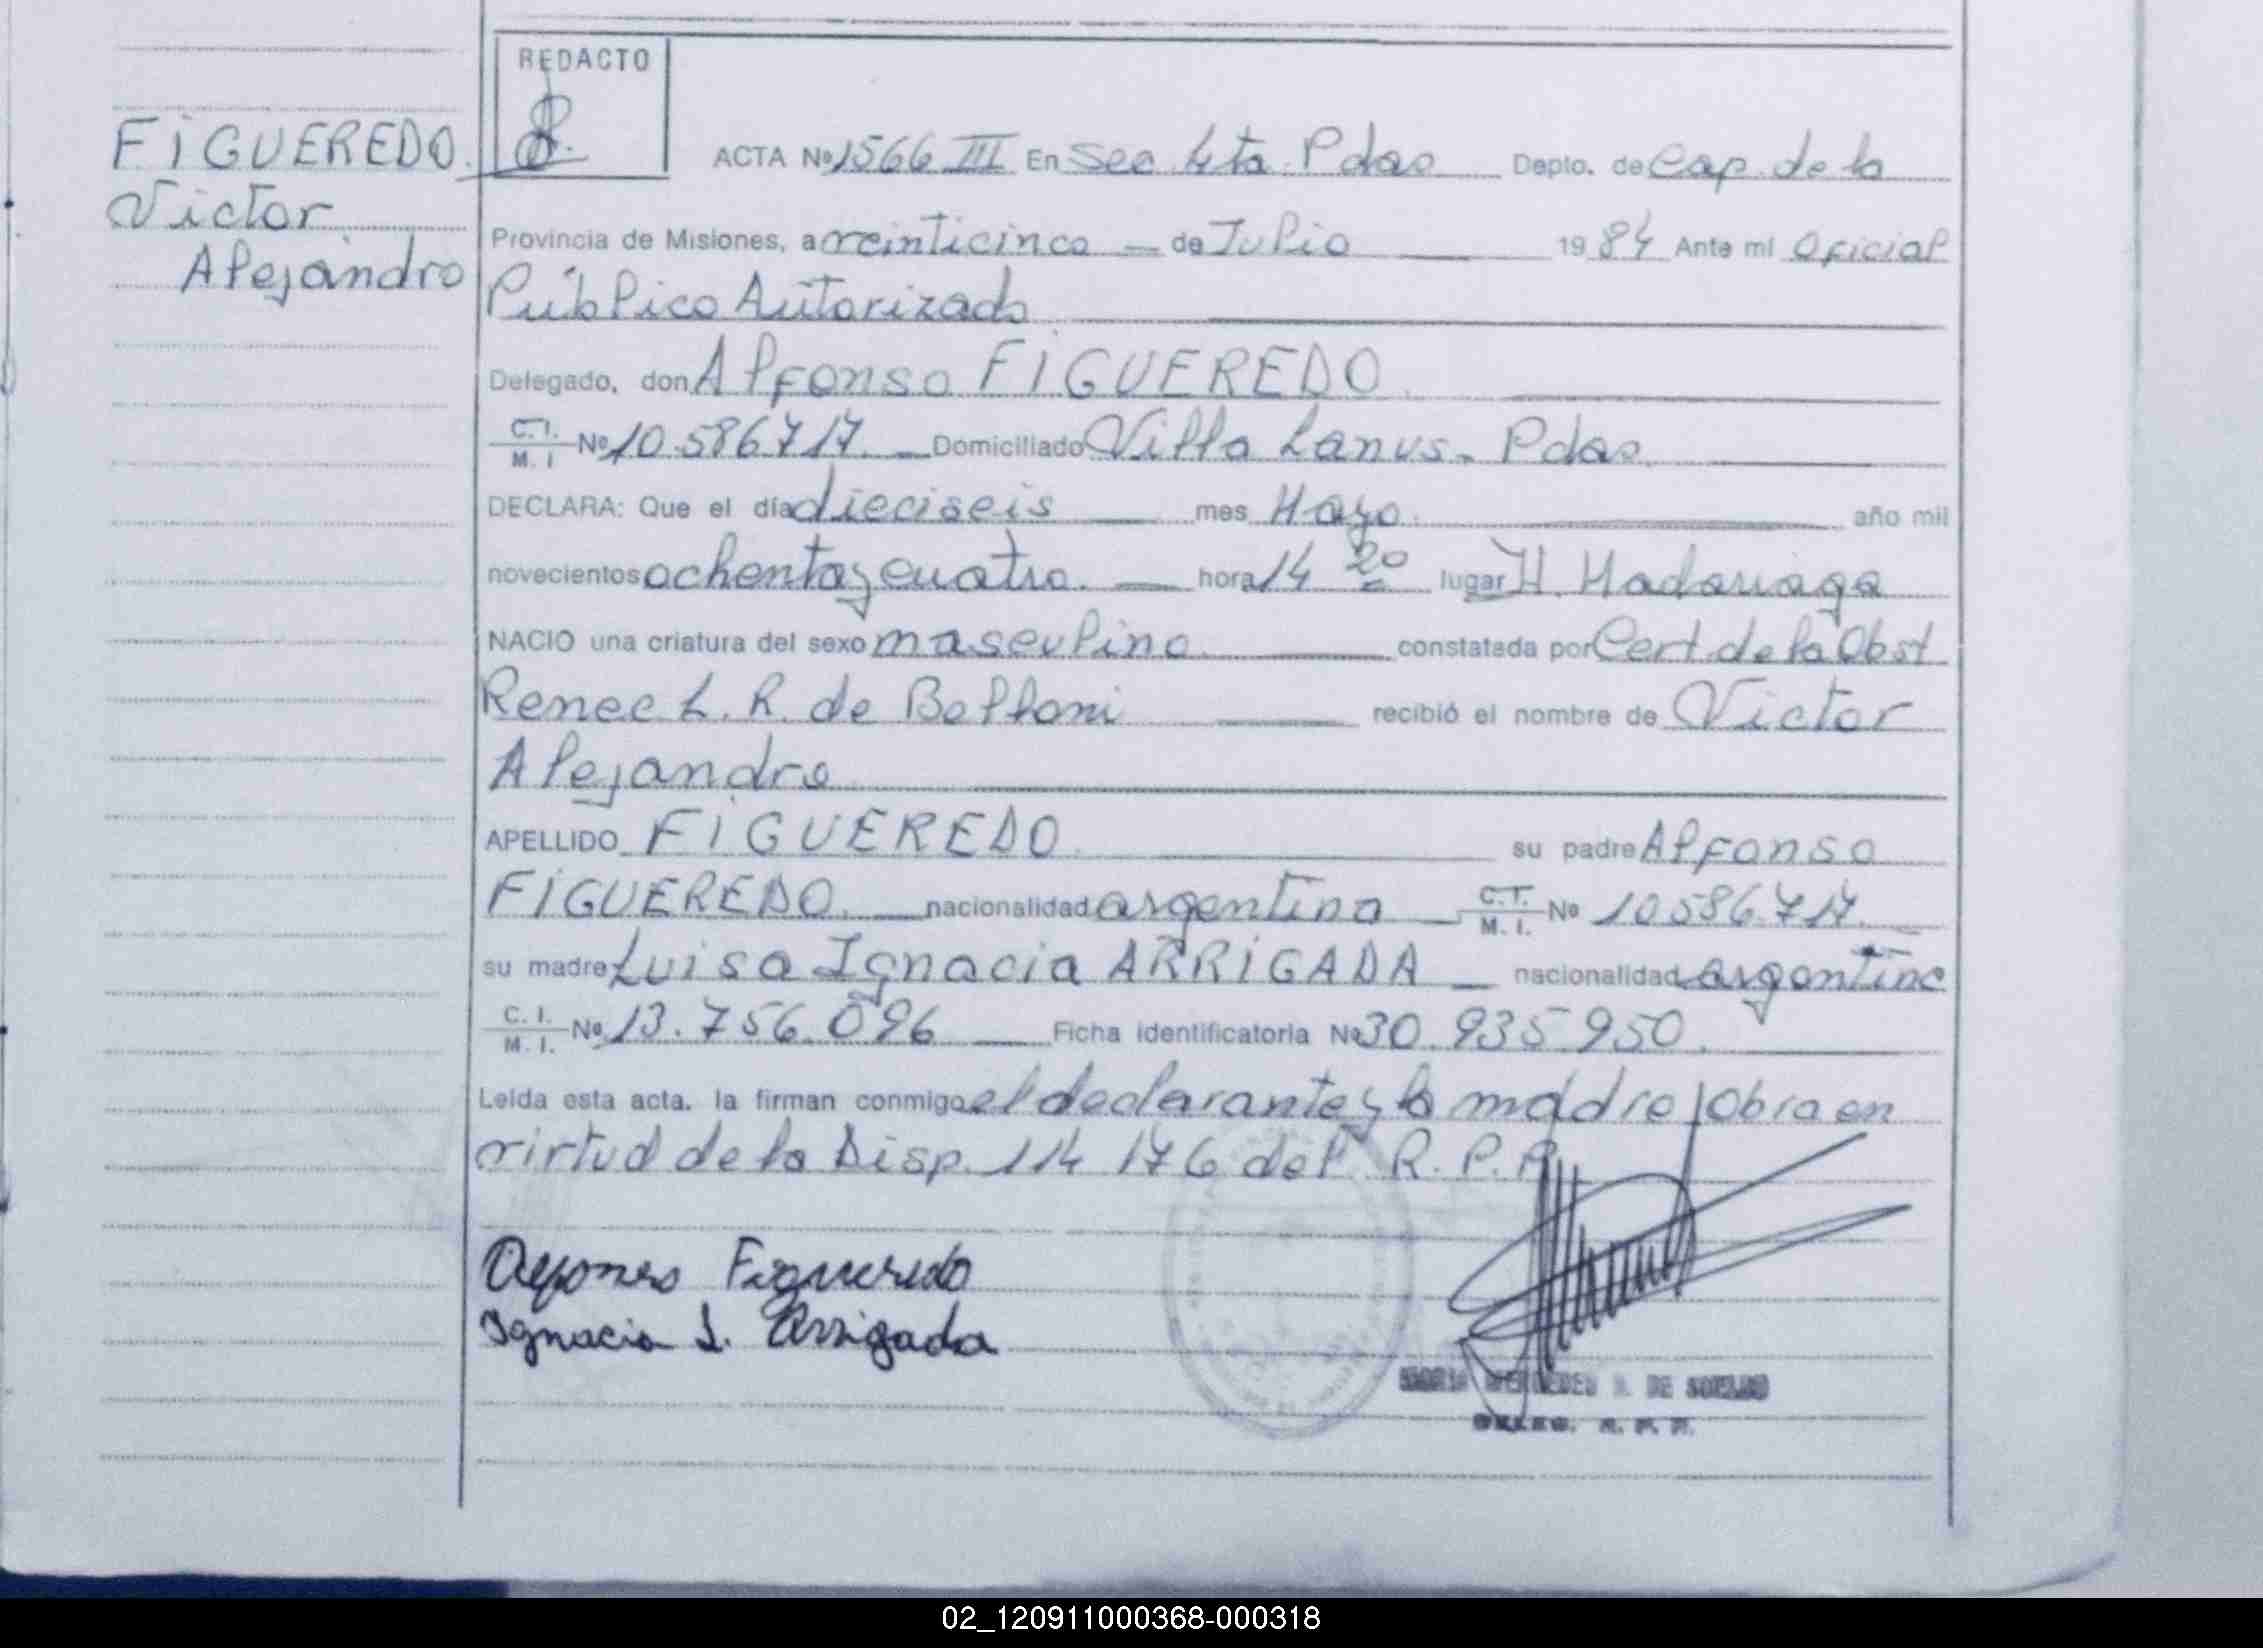 REDACTO
FIGUEREDO
Victor
Alejandro
ACTA Nº 1566 III En Sec 4ta Pdas Depto. de Cap. de la
Provincia de Misiones, a veinticinco — de Julio 1984 Ante mi Oficial
Público Autorizado
Delegado, don Alfonso FIGUEREDO.
C.I. M. I Nº 10.586717. Domiciliado Villa Lanus - Pdas.
DECLARA: Que el día dieciseis mes Mayo. año mil
novecientos ochenta y cuatro. hora 14 20 lugar H. Madariaga
NACIO una criatura del sexo masculino. constatada por Cert. de la Obst
Renee L. R. de Belloni recibió el nombre de Victor
Alejandro
APELLIDO FIGUEREDO su padre Alfonso
FIGUEREDO. nacionalidad argentina C.I. M. I. Nº 10586.717.
su madre Luisa Ignacia ARRIGADA nacionalidad argentina
C. I. M. I. Nº 13.756.096 Ficha identificatoria Nº 30.935950.
Leida esta acta. la firman conmigo el declarante y la madre, Obra en
virtud de la Disp. 114 176 del R. P. P.
Alfonso Figueredo
Ignacia L. Arrigada
DE
R. P. P.
02_120911000368-000318